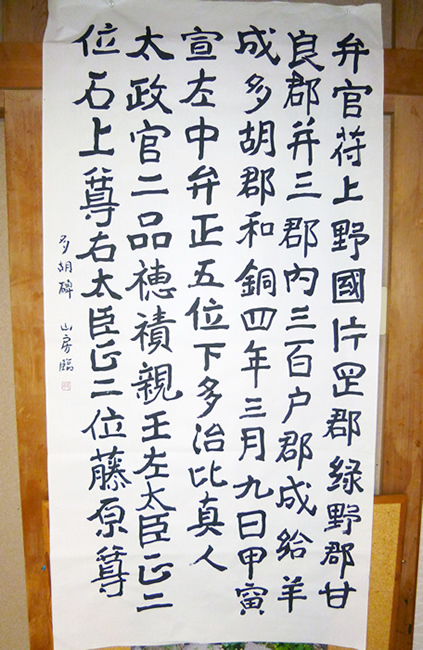 弁官苻上野國片罡郡綠野郡甘
良郡并三郡內三百戶郡成給羊
成多胡郡和銅四年三月九日甲寅
宣左中弁正五位下多治比真人
太政官二品穂積親王左太臣正二
位石上尊右太臣正二位藤原尊
多胡碑 山房臨